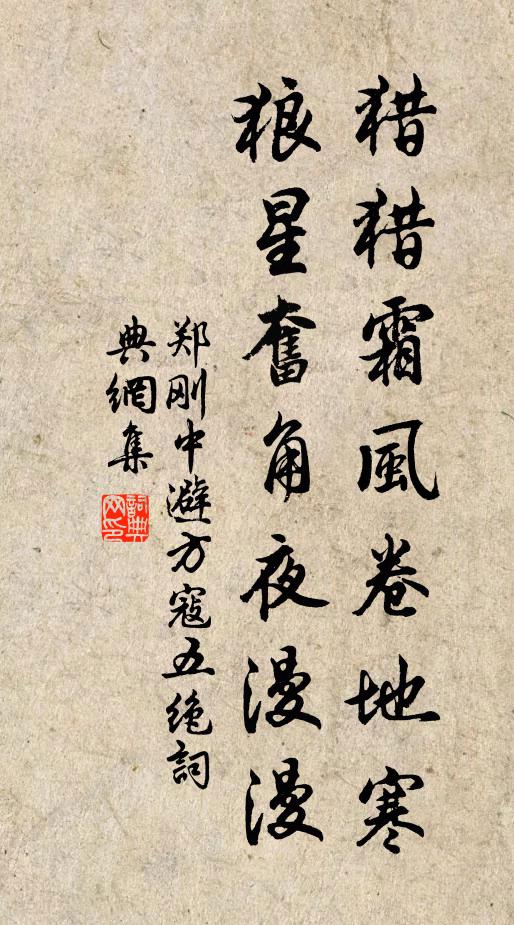 猎猎霜風卷地寒
狼星奮角夜漫漫
郑刚中避方寇五绝詞
典網集
詞典網印